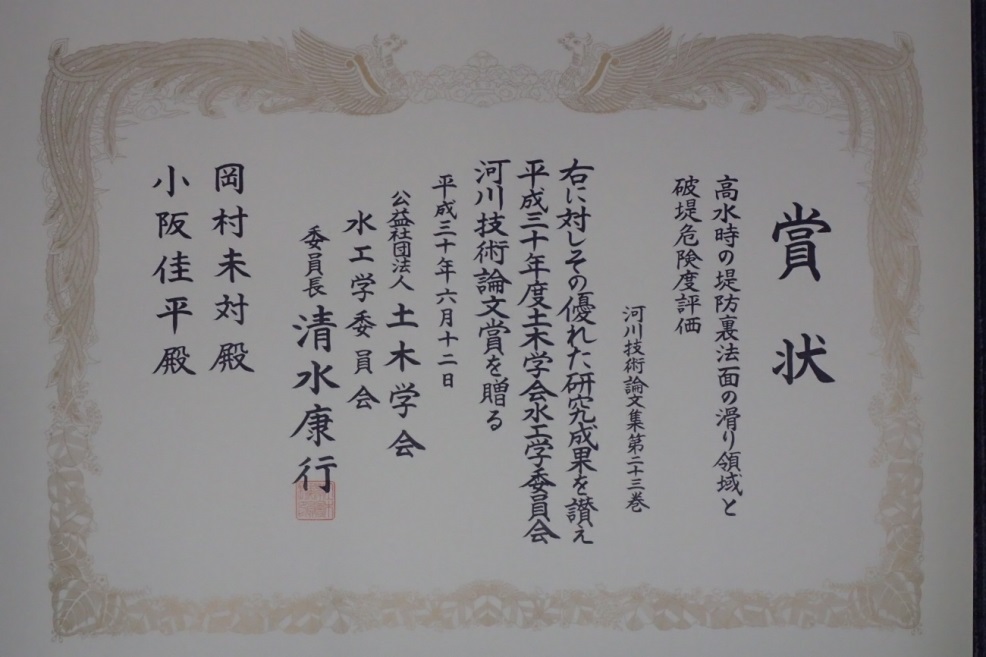 賞状
高水時の堤防裏法面の滑り領域と
破堤危険度評価
河川技術論文集第二十三巻
右に対しその優れた研究成果を讃え
平成三十年度土木学会水工学委員会
河川技術論文賞を贈る
平成三十年六月十二日
公益社団法人 土木学会
水工学委員会
委員長 清水康行
岡村未対殿
小阪佳平殿